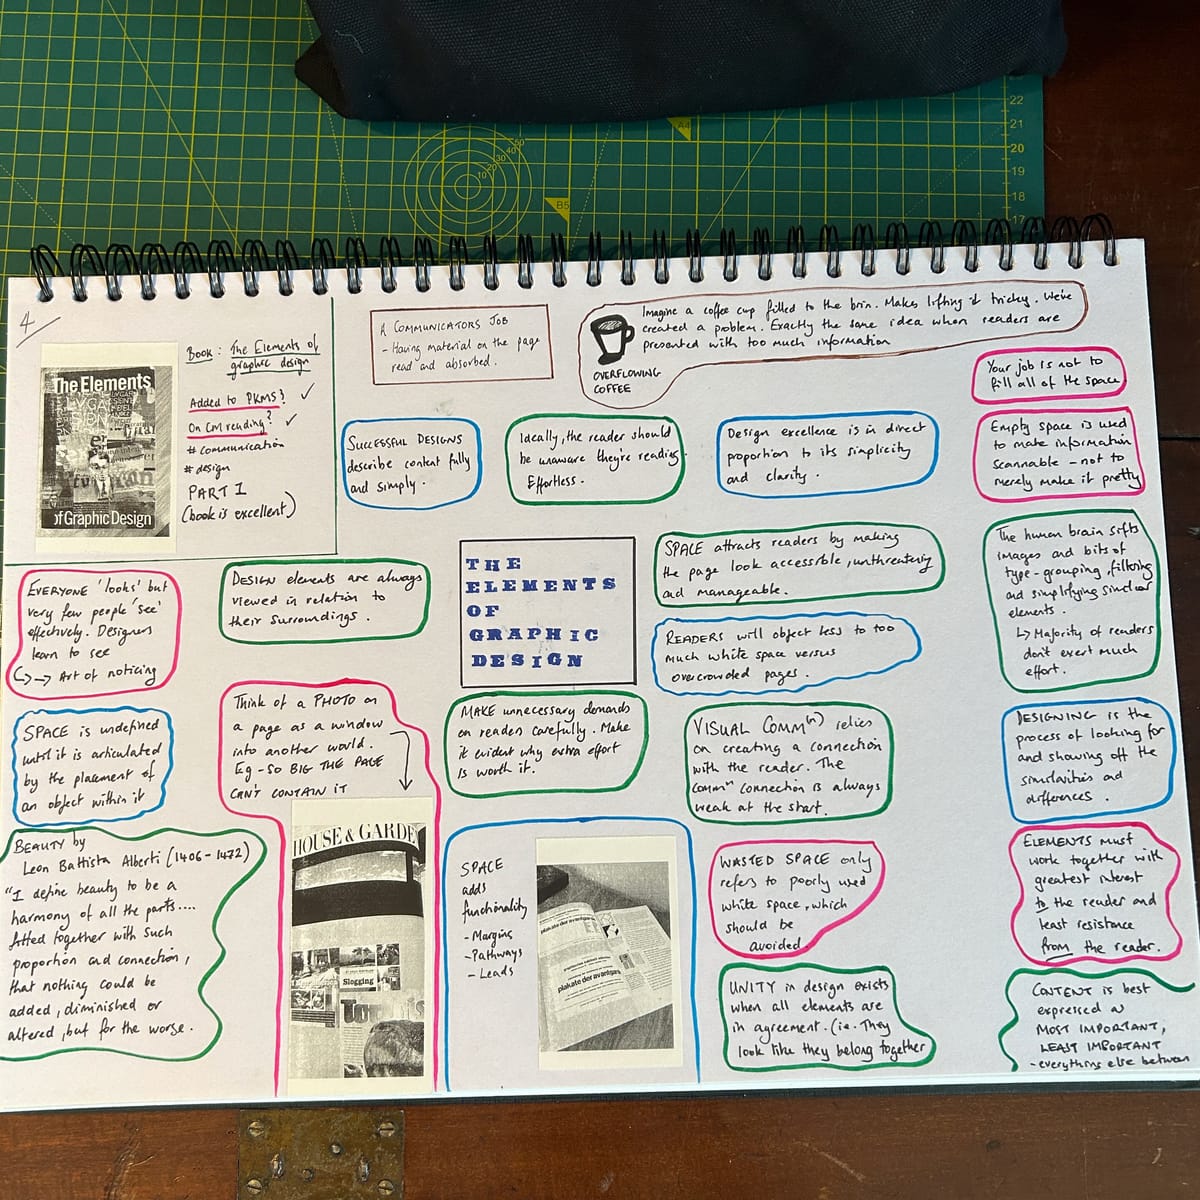 22
21
20
19
18
17
A4
B5
50
40
30
20
10
4
The Elements
of Graphic Design
Book: The Elements of
graphic design
Added to PKMS? ✓
On CM reading? ✓
# communication
# design
PART I
(book is excellent)
A COMMUNICATORS JOB
- Having material on the page
read and absorbed.
OVERFLOWING
COFFEE
Imagine a coffee cup filled to the brim. Makes lifting it tricky. We've
created a problem. Exactly the same idea when readers are
presented with too much information
Your job is not to
fill all of the space
SUCCESSFUL DESIGNS
describe content fully
and simply.
Ideally, the reader should
be unaware they're reading.
Effortless.
Design excellence is in direct
proportion to its simplicity
and clarity.
Empty space is used
to make information
scannable - not to
merely make it pretty
EVERYONE 'looks' but
very few people 'see'
effectively. Designers
learn to see
↳→ Art of noticing
DESIGN elements are always
viewed in relation to
their surroundings.
THE
ELEMENTS
OF
GRAPHIC
DESIGN
SPACE attracts readers by making
the page look accessible, unthreatening
and manageable.
READERS will object less to too
much white space versus
overcrowded pages.
The human brain sifts
images and bits of
type - grouping, filtering
and simplifying similar
elements.
↳ Majority of readers
don't exert much
effort.
SPACE is undefined
until it is articulated
by the placement of
an object within it
Think of a PHOTO on
a page as a window
into another world.
Eg - SO BIG THE PAGE
CAN'T CONTAIN IT
HOUSE & GARDE
Slogging
MAKE unnecessary demands
on readers carefully. Make
it evident why extra effort
is worth it.
VISUAL COMMⁿ) relies
on creating a connection
with the reader. The
commⁿ connection is always
weak at the start.
DESIGNING is the
process of looking for
and showing off the
similarities and
differences.
BEAUTY by
Leon Battista Alberti (1406-1472)
"I define beauty to be a
harmony of all the parts....
fitted together with such
proportion and connection,
that nothing could be
added, diminished or
altered, but for the worse.
SPACE
adds
functionality
- Margins
- Pathways
- Leads
plakate der avantgarde
plakate der avantgarde
WASTED SPACE only
refers to poorly used
white space, which
should be
avoided.
ELEMENTS must
work together with
greatest interest
to the reader and
least resistance
from the reader.
UNITY in design exists
when all elements are
in agreement. (ie. They
look like they belong together
CONTENT is best
expressed as
MOST IMPORTANT,
LEAST IMPORTANT
- everything else between